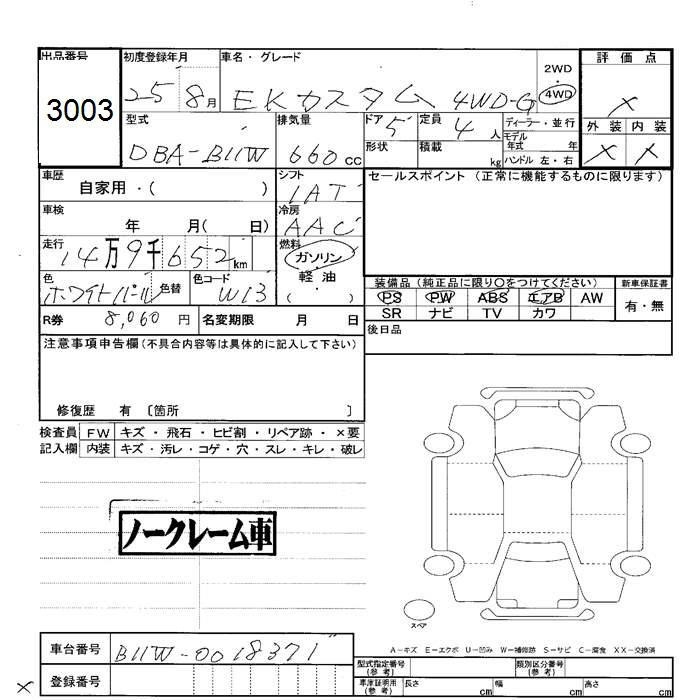 出品番号
3003
初度登録年月
25 8月
車名・グレード
EKカスタム 4WD-G
2WD
・
4WD
評価点
×
外装 内装
× ×
型式
DBA-B11W
排気量
660 cc
ドア 5
定員 4 人
ディーラー・並行
モデル年式 年
形状
積載 kg
ハンドル 左・右
車歴
自家用・( )
シフト
IAT
車検
年 月( 日)
冷房
AAC
走行
14万9千652km
燃料
ガソリン
軽・油
( )
色
ホワイトパール
色替
色コード
W13
R券 8,060 円
名変期限 月 日
セールスポイント (正常に機能するものに限ります)
装備品 (純正品に限り○をつけてください)
PS PW ABS エアB AW
SR ナビ TV カワ
新車保証書
有・無
後日品
注意事項申告欄(不具合内容等は具体的に記入して下さい)
修復歴 有 〔箇所 〕
検査員 FW キズ・飛石・ヒビ割・リペア跡・×要
記入欄 内装 キズ・汚レ・コゲ・穴・スレ・キレ・破レ
ノークレーム車
スペア
A-キズ E-エクボ U-凹み W-補修跡 S-サビ C-腐食 XX-交換済
車台番号 B11W-0018371
登録番号
×
型式指定番号(参考)
類別区分番号(参考)
車庫証明用(参考) 長さ cm 幅 cm 高さ cm